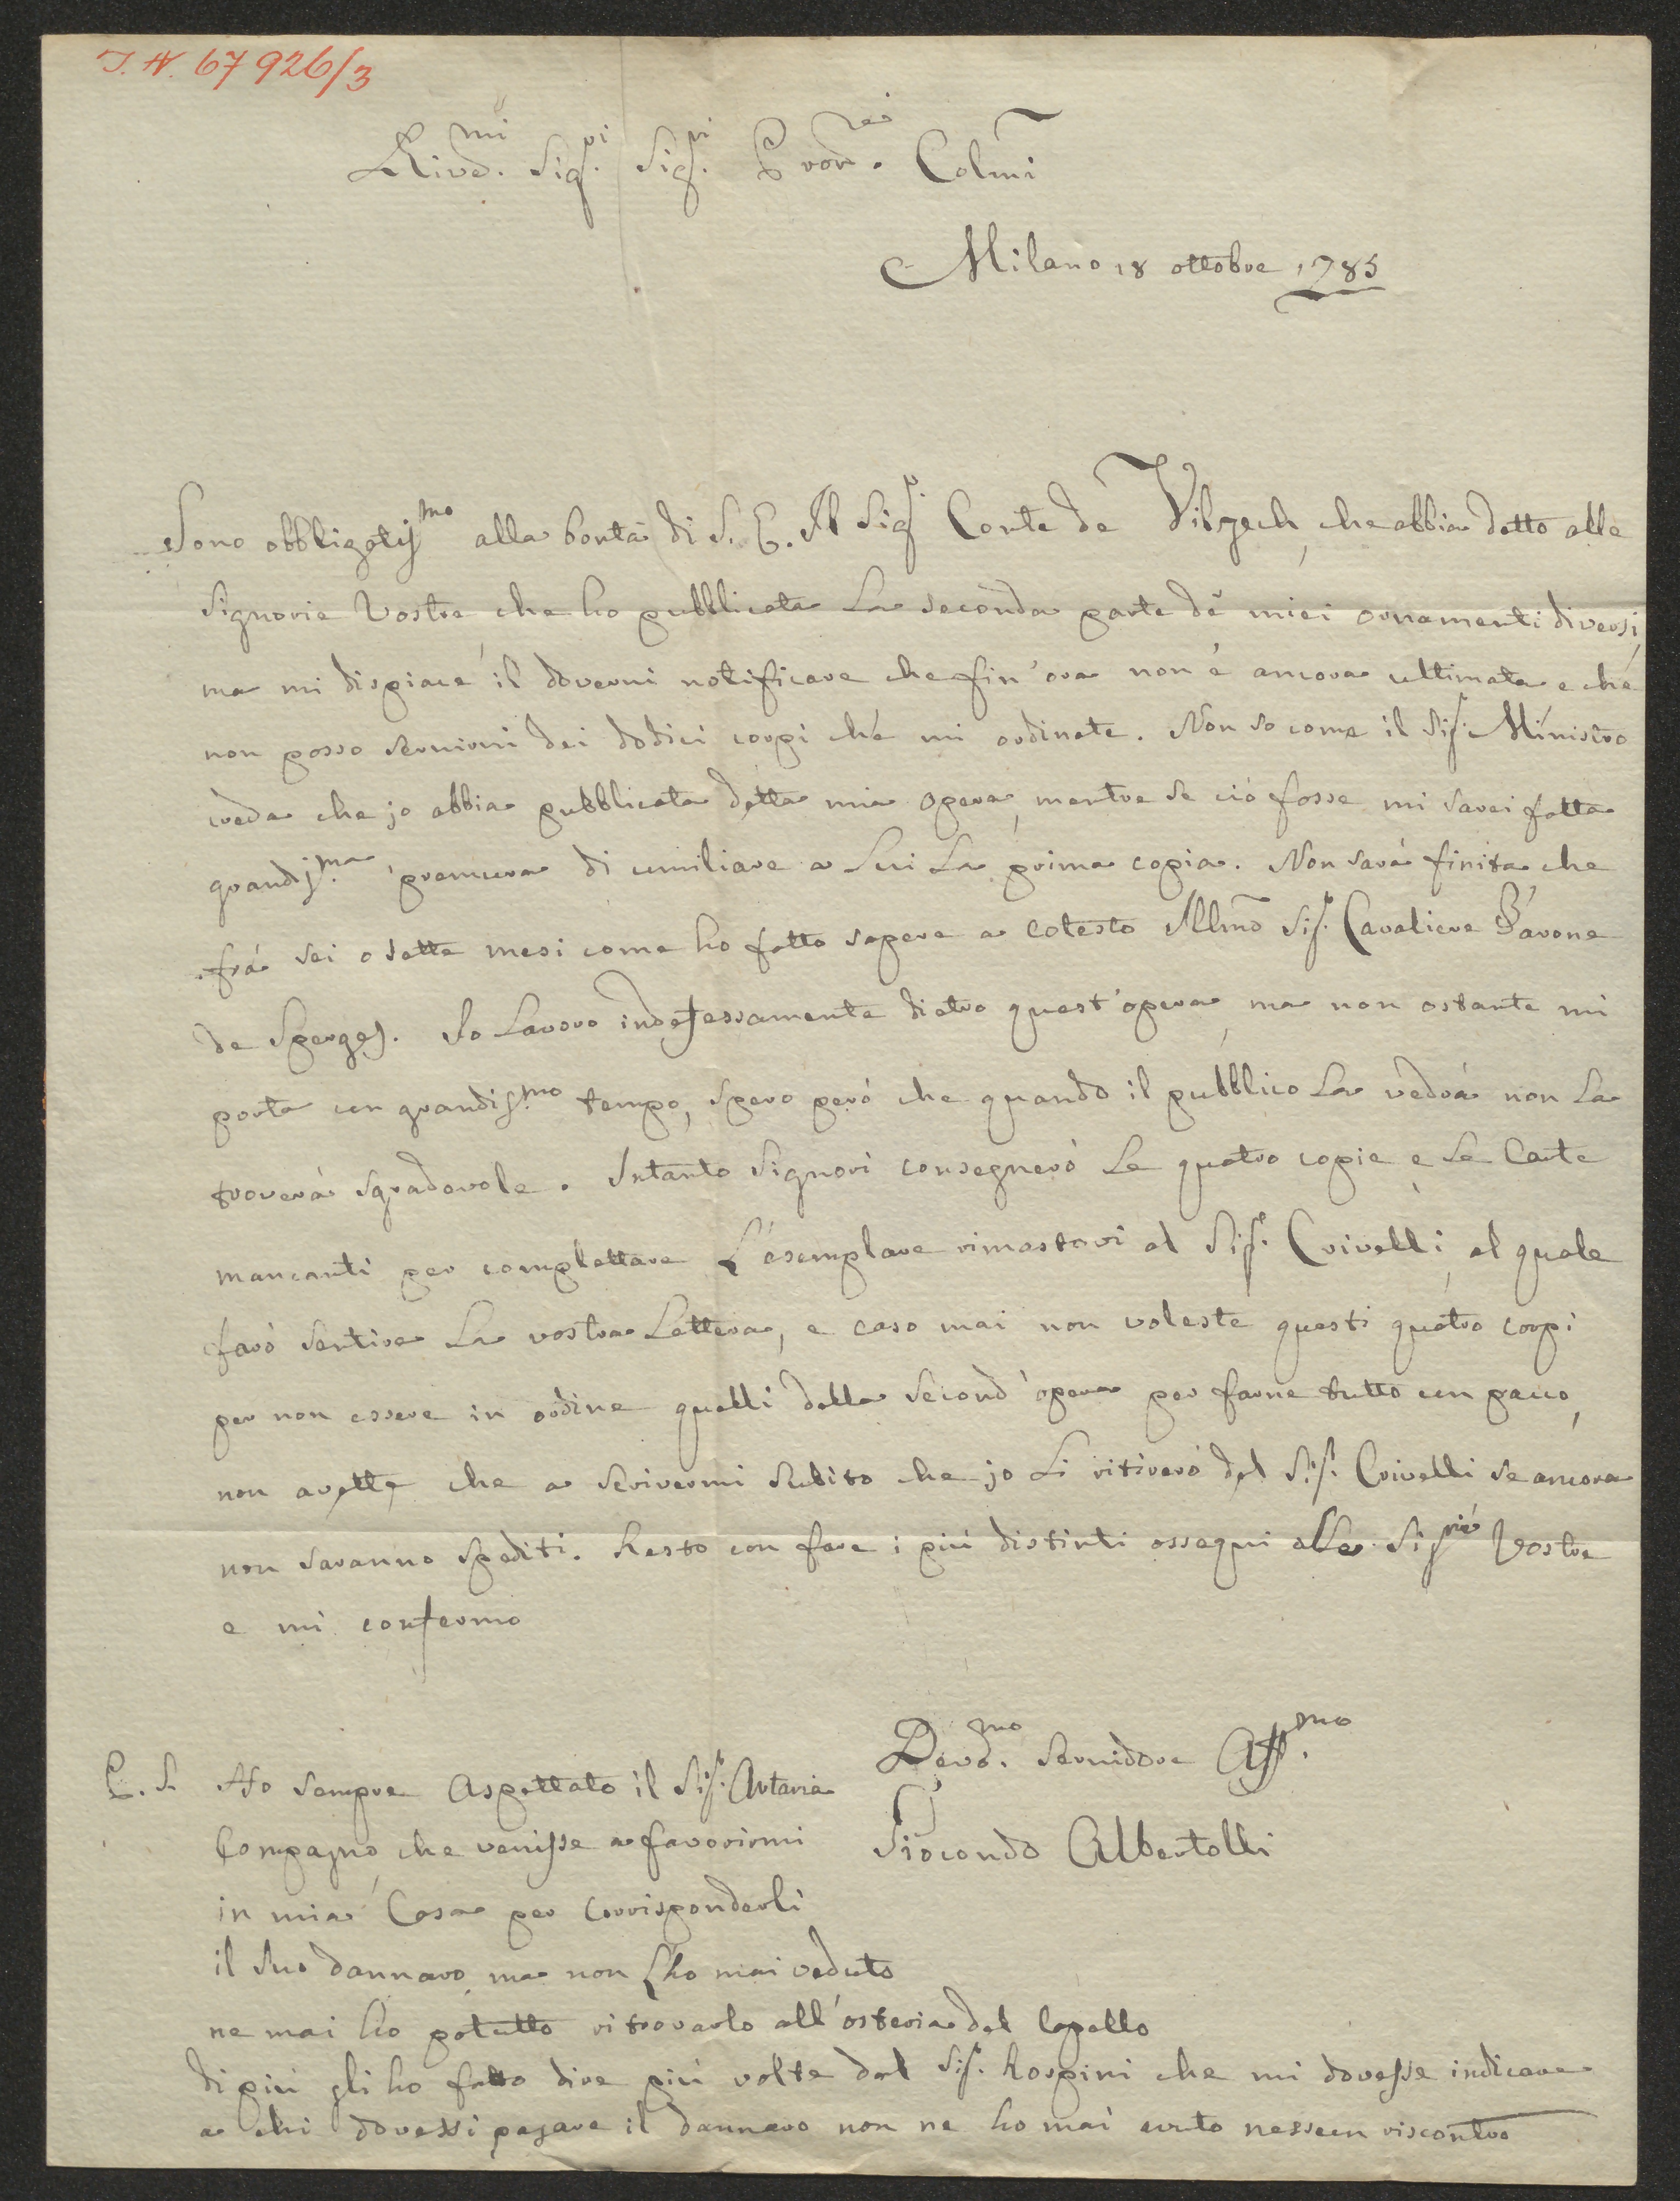 I. N. 67 926/3
Rived.mi Sig.ri Sig.ri Pron.i Colmi
Milano 18 ottobre 1785
Sono obbligatis.mo alla bontà di S. E. Il Sig.r Conte de Vilzech, che abbia detto alle
Signorie Vostre che ho pubblicata La seconda parte de miei ornamenti diversi,
ma mi dispiace il dovervi notificare che fin'ora non è ancora ultimata e che
non posso servirvi dei dodici corpi che mi ordinate. Non so come il Sig.r Ministro
creda che jo abbia pubblicata detta mia opera, mentre se ciò fosse mi sarei fatta
grandis.ma premura di umiliare a Lui La prima copia. Non sarà finita che
frà sei o sette mesi come ho fatto sapere a cotesto Illmo Sig.r Cavaliere Barone
de Sperges. Io Lavoro indefessamente dietro quest'opera, ma non ostante mi
porta un grandis.mo tempo, spero però che quando il pubblico La vedrà non La
troverà sgradevole. Intanto Signori consegnerò Le quatro copie e Le Carte
mancanti per complettare L'esemplare rimastovi al Sig.r Crivelli, al quale
farò sentire La vostra Lettera, e caso mai non voleste questi quatro corpi
per non essere in ordine quelli della second'opera per farne tutto un pacco,
non avette che a scrivermi subito che jo Li ritirerò dal Sig.r Crivelli se ancora
non saranno spediti. Resto con fare i più distinti ossequi alle Sig.rie Vostre
e mi confermo
Devo.mo Servidore Aff.mo
Giocondo Albertolli
P. S. Ho sempre Aspettato il Sig.r Artaria
Compagno che venisse a favorirmi
in mia Casa per Corrisponderli
il suo dannaro, ma non L'ho mai veduto
ne mai ho potutto ritrovarlo all'osteria del Capello
di più gli ho fatto dire più volte dal Sig.r Rospini che mi dovesse indicare
a chi dovessi pagare il dannaro non ne ho mai avuto nessun riscontro